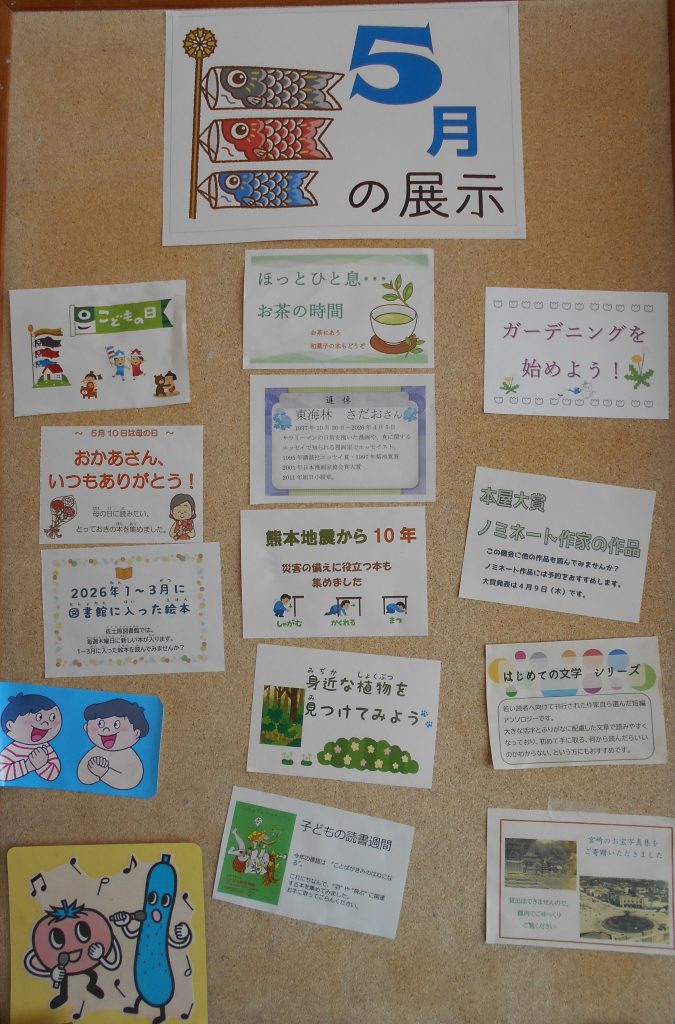 5
月
の展示
こどもの日
ほっとひと息…
お茶の時間
お茶にあう
和菓子の本もどうぞ
ガーデニングを
始めよう！
追悼
東海林　さだおさん
1937年10月30日～2026年4月5日
サラリーマンの日常を描いた漫画や、食に関する
エッセイで知られる漫画家でエッセイスト。
1995年講談社エッセイ賞・1997年菊池寛賞
2001年日本漫画家協会賞大賞
2011年旭日小綬章。
～　5月10日は母の日　～
おかあさん、
いつもありがとう！
母の日に読みたい、
とっておきの本を集めました。
本屋大賞
ノミネート作家の作品
この機会に他の作品も読んでみませんか？
ノミネート作品には予約をおすすめします。
大賞発表は4月9日（木）です。
熊本地震から10年
災害の備えに役立つ本も
集めました
しゃがむ
かくれる
まつ
2026年1～3月に
図書館に入った絵本
佐土原図書館では、
毎週木曜日に新しい本が入ります。
1～3月に入った絵本を読んでみませんか？
身近な植物を
見つけてみよう
はじめての文学　シリーズ
若い読者へ向けて刊行された作家自ら選んだ短編
アンソロジーです。
大きな活字とふりがなに配慮した文章で読みやすく
なっており、初めて手に取る、何から読んだらいい
のかわからない、という方にもおすすめです。
子どもの読書週間
今年の標語は　“ことばがきみのはねにな
る”。
これにちなんで、“羽”や“飛ぶ”に関連
する本を集めてみました。
お手に取ってごらんください。
宮崎のお宝写真集を
ご寄贈いただきました
貸出はできませんので、
館内でごゆっくり
ご覧ください